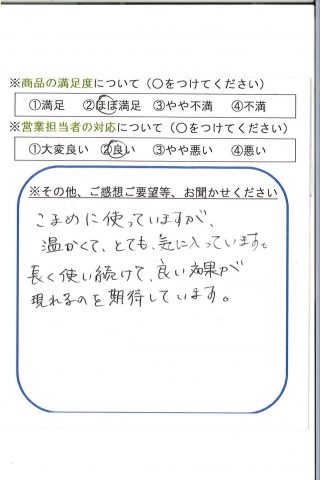 ※商品の満足度について（○をつけてください）
①満足　②ほぼ満足　③やや不満　④不満
※営業担当者の対応について（○をつけてください）
①大変良い　②良い　③やや悪い　④悪い
※その他、ご感想ご要望等、お聞かせください
こまめに使っていますが、
温かくて、とても、気に入っています。
長く使い続けて、良い効果が
現れるのを期待しています。